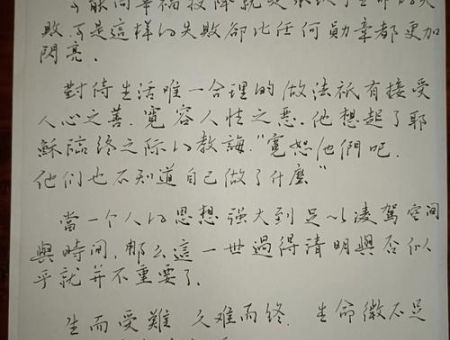 能向幸福投降就
敗,可是這樣的失敗卻比任何勛章都更加
閃亮.
對待生活唯一合理的做法祇有接受
人心之善.寬容人性之惡.他想起了耶
穌臨終之际的教誨."寬恕他們吧.
他们也不知道自己做了什麼"
當一个人的思想強大到足以凌駕空间
與時间,那么這一世過得清明與否似
乎就并不重要了.
生而受難 久难而终. 生命微不足